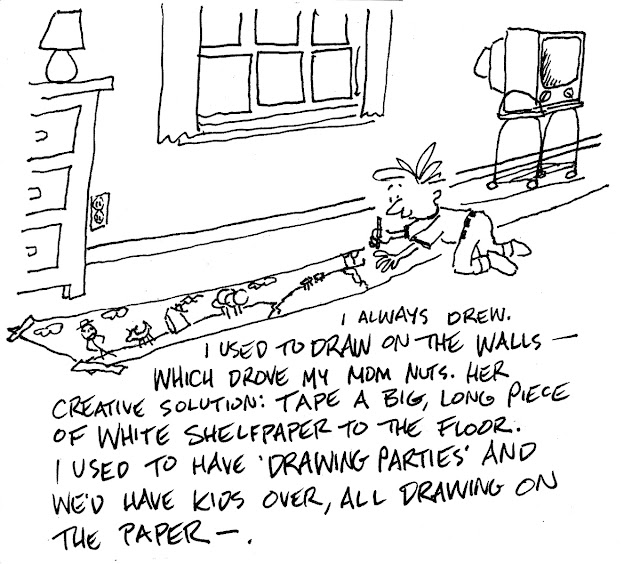 I ALWAYS DREW.
I USED TO DRAW ON THE WALLS —
WHICH DROVE MY MOM NUTS. HER
CREATIVE SOLUTION: TAPE A BIG, LONG PIECE
OF WHITE SHELFPAPER TO THE FLOOR.
I USED TO HAVE 'DRAWING PARTIES' AND
WE'D HAVE KIDS OVER, ALL DRAWING ON
THE PAPER —.